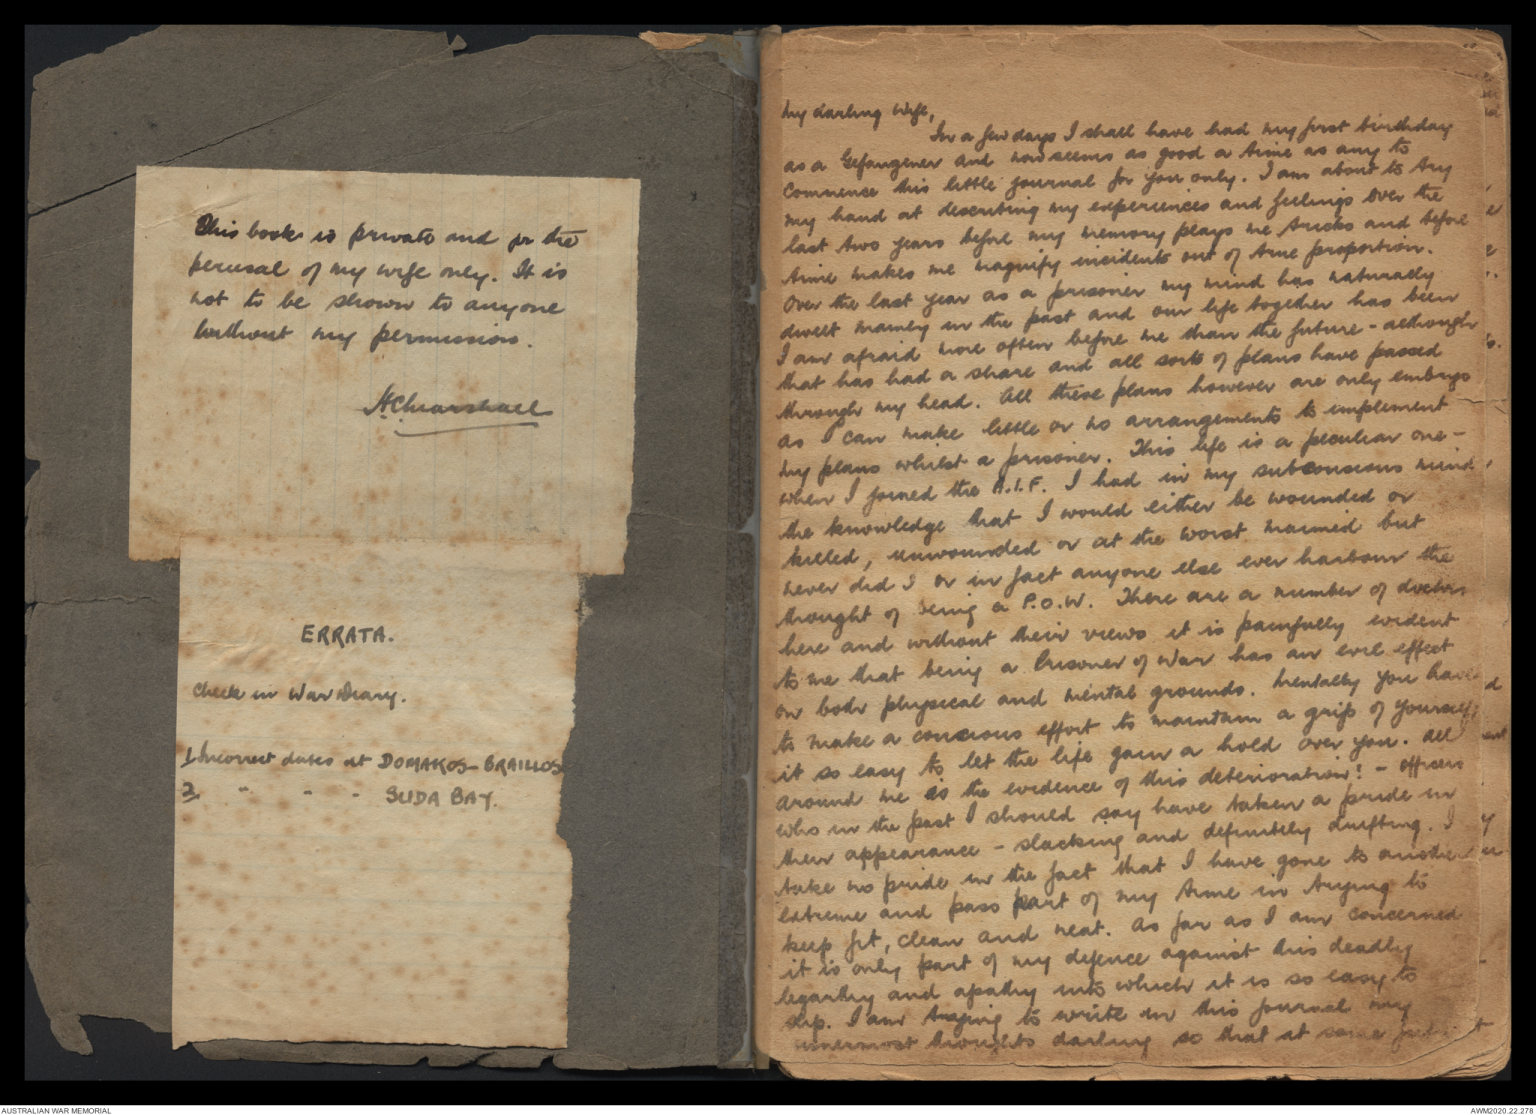 This book is private and for the
perusal of my wife only. It is
not to be shown to anyone
without my permission.
ACMarshall
ERRATA.
Check in War Diary.
1 Incorrect dates at DOMAKOS - BRAILLOS
2 " - - SUDA BAY.
My darling Wife,
In a few days I shall have had my first birthday
as a Gefangener and now seems as good a time as any to
commence this little journal for you only. I am about to try
my hand at describing my experiences and feelings over the
last two years before my memory plays me tricks and before
time makes me magnify incidents out of true proportion.
Over the last year as a prisoner my mind has naturally
dwelt mainly in the past and our life together has been
I am afraid more often before me than the future - although
that has had a share and all sorts of plans have passed
through my head. All these plans however are only embryo
as I can make little or no arrangements to implement
my plans whilst a prisoner. This life is a peculiar one -
when I joined the A.I.F. I had in my subconscious mind
the knowledge that I would either be wounded or
killed, unwounded or at the worst maimed but
never did I or in fact anyone else ever harbour the
thought of being a P.O.W. There are a number of doctors
here and without their views it is painfully evident
to me that being a Prisoner of War has an evil effect
on both physical and mental grounds. Mentally you have
to make a concious effort to maintain a grip of yourself
it so easy to let the life gain a hold over you. All
around me is the evidence of this deterioration! - officers
who in the past I should say have taken a pride in
their appearance - slacking and definitely drifting. I
take no pride in the fact that I have gone to another
extreme and pass part of my time in trying to
keep fit, clean and neat. As far as I am concerned
it is only part of my defence against this deadly
legarthy and apathy into which it is so easy to
slip. I am trying to write in this journal my
innermost thoughts darling so that at some
AUSTRALIAN WAR MEMORIAL
AWM2020.22.278